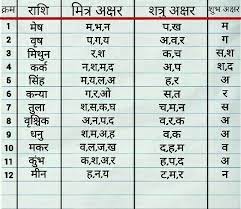 क्रम राशि मित्र अक्षर शत्रु अक्षर शुभ अक्षर
1 मेष म,भ,न प,ख म
2 वृष प,ग,य अ,व,र ग
3 मिथुन र,श क,च स,श
4 कर्क न,श,म,द अ,प श,द
5 सिंह म,य,ल,अ ह,र अ
6 कन्या ग,र,ओ स,त र
7 तुला श,स,क,घ च,म,न स
8 वृश्चिक अ,न,प,द व,र,क अ
9 धनु श,म,अ,ह व,क अ
10 मकर व,ल,ज,ख द,ह,म व
11 कुंभ क,श,अ,र ह,प,द अ
12 मीन ह,न,य ट,म,र न